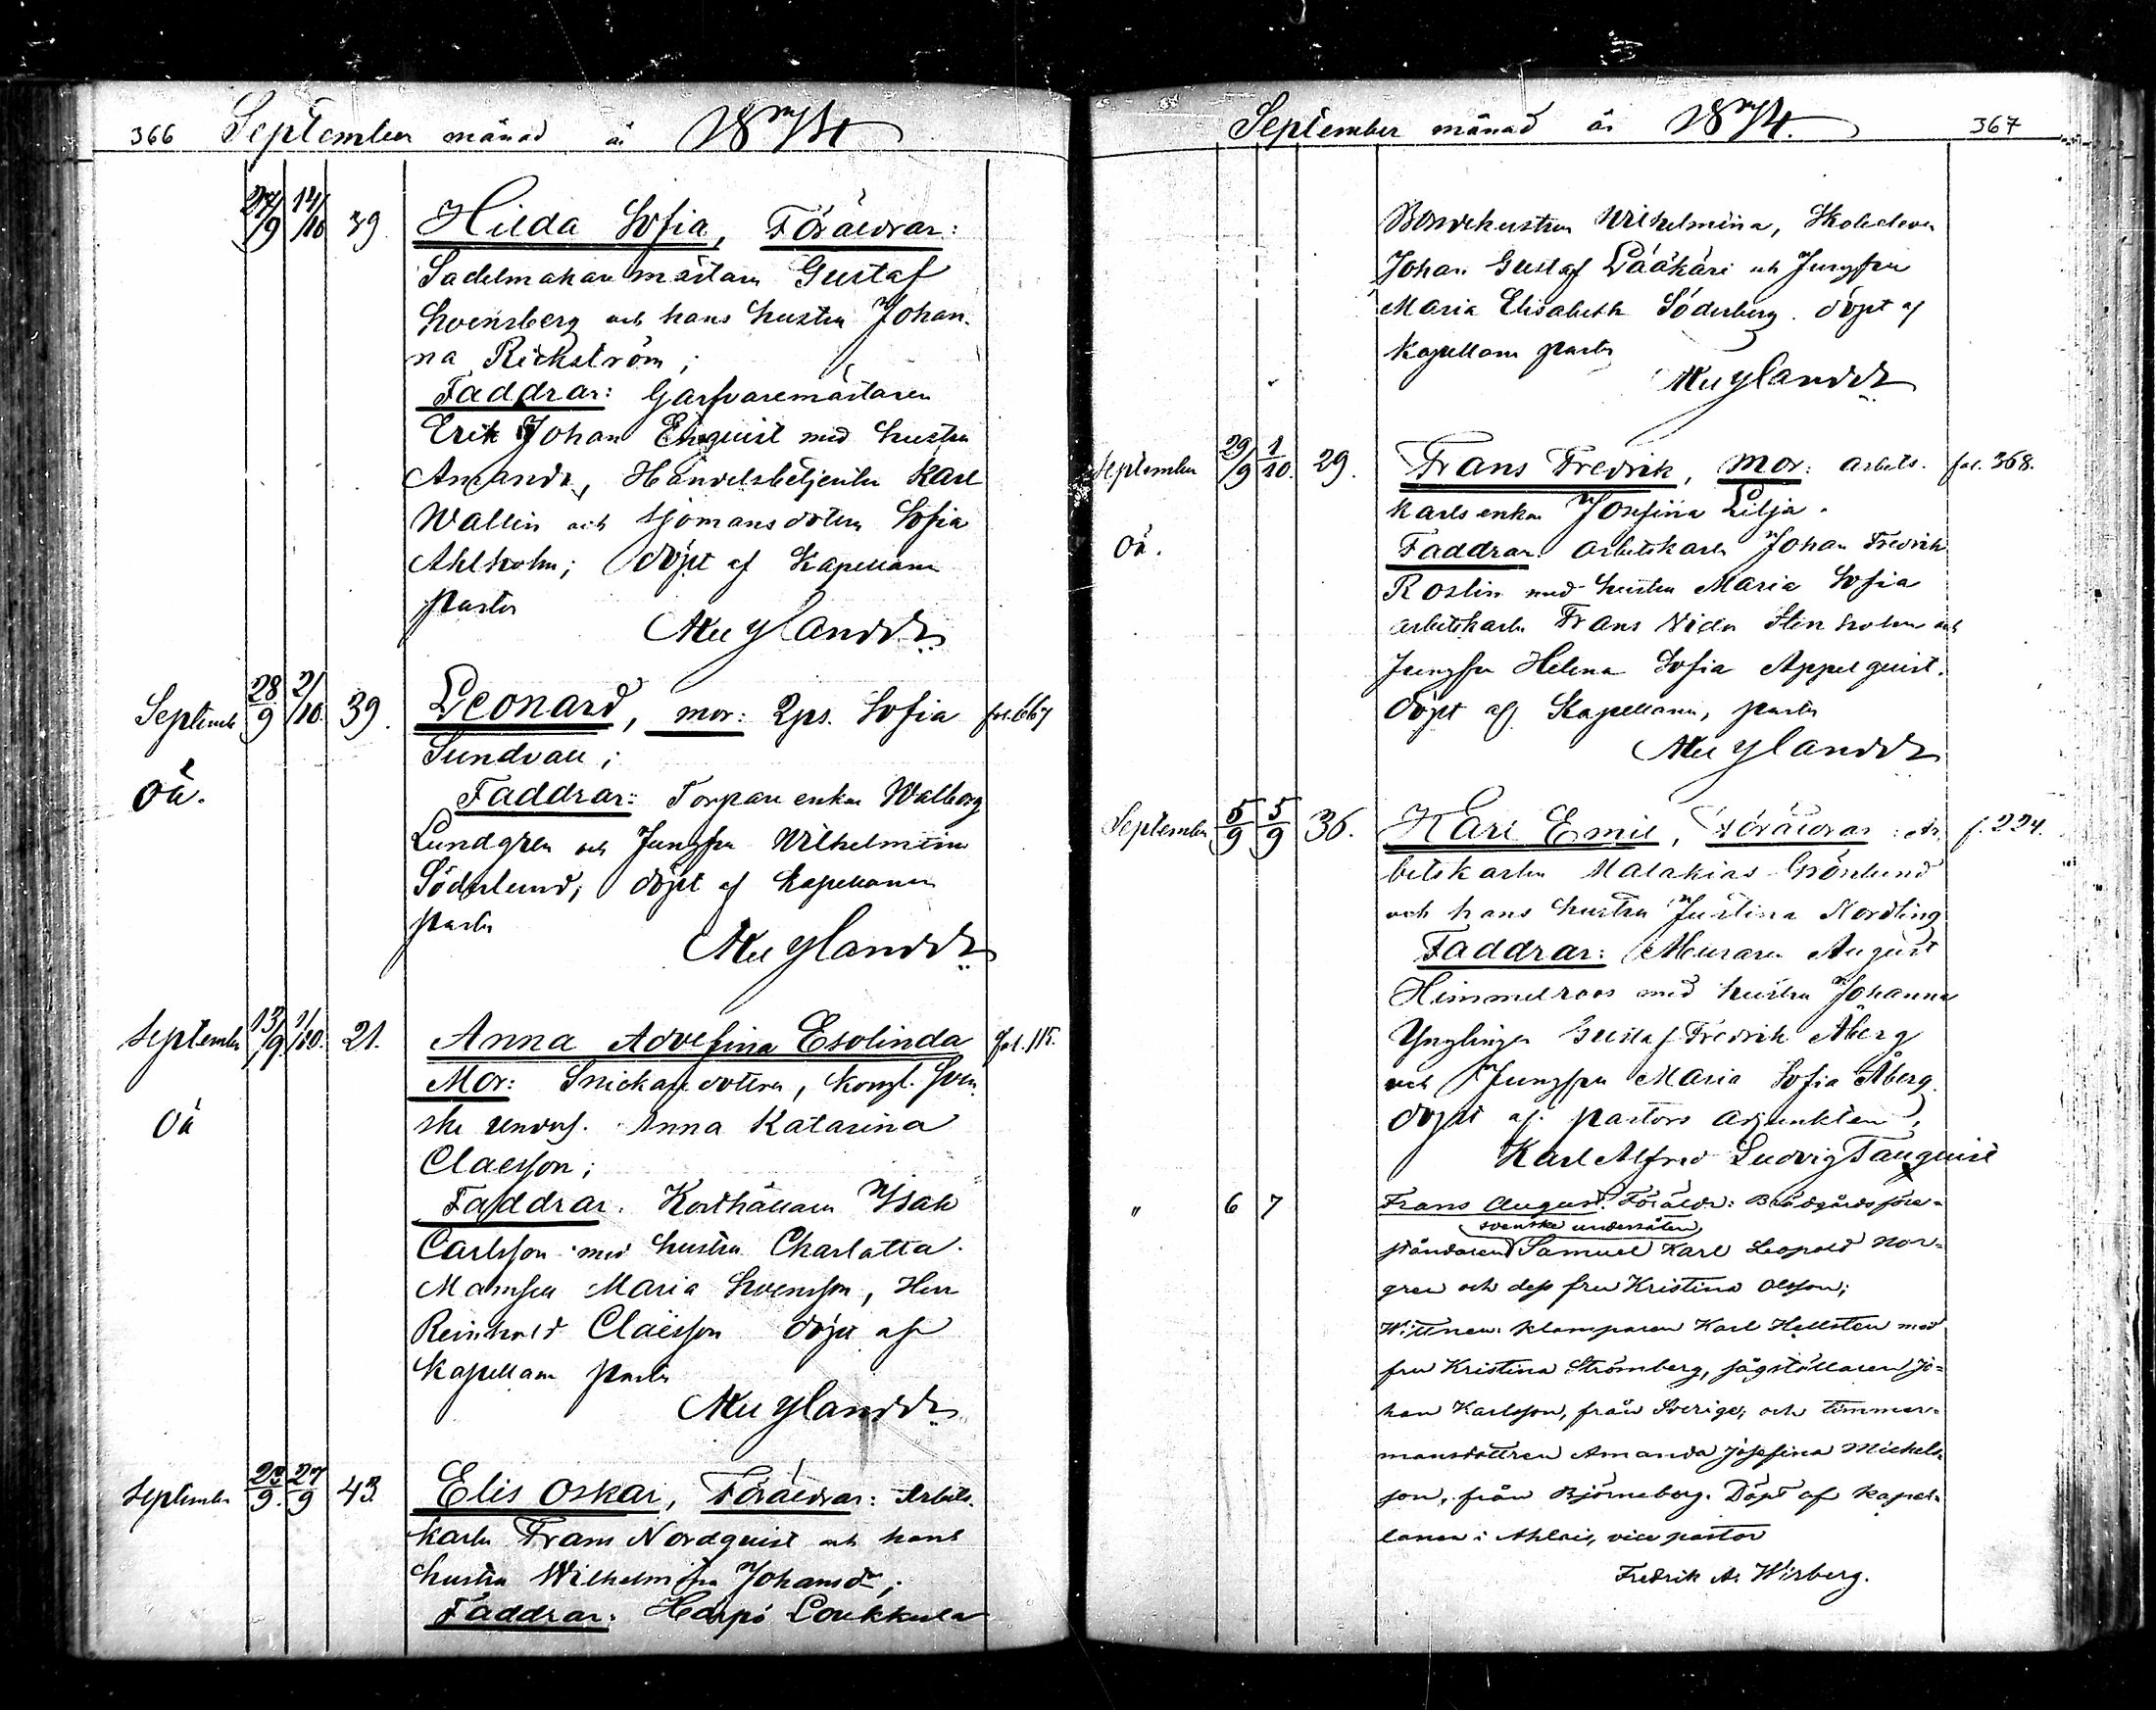 366 September månad år 1874
27/9 14/10 39 Hilda Sofia, Föräldrar:
Sadelmakaremästaren Gustaf
Svensberg och hans hustru Johan-
na Rickström;
Faddrar: Garfvaremästaren
Erik Johan Enquist med hustru
Amanda, Handelsbetjenten Karl
Wallin och Sjömansdottren Sofia
Ahlholm; döpt af Kapellanen
pastor
Nylander
September 28/9 2/10. 39. Leonard, mor: Qps. Sofia fol. 667
Sundvall;
oä.
Faddrar: Torpare enkan Walborg
Lundgren och Jungfru Wilhelmina
Söderlund; döpt af Kapellanen
pastor
Nylander
September 13/9 1/10. 21. Anna Adolfina Esolinda fol. 115.
Mor: Snickaredottren, Kongl. Sven-
oä
ske unders. Anna Katarina
Claesson;
Faddrar. Korthållaren Isak
Carlsson med hustru Charlotta.
Mamsell Maria Svensson, Herr
Reinhold Claësson döpt af
Kapellanen pastor
Nylander
September 23/9. 27/9 43. Elis Oskar, Föräldrar: Arbets-
karlen Frans Nordquist och hans
hustru Wilhelmina Johansdr;
Faddrar: Harpö Loukkula
September månad år 1874. 367
Bondehustrun Wilhelmina, Skoleleven
Johan Gustaf Pääkäri och Jungfru
Maria Elisabeth Söderberg. döpt af
Kapellanen pastor
Nylander
September 29/9 1/10. 29. Frans Fredrik, mor: arbets- fol. 368.
karls enkan Josefina Lilja.
oä.
Faddrar: arbetskarlen Johan Fredrik
Roslin med hustru Maria Sofia
arbetskarlen Frans Stenholm och
Jungfru Helena Sofia Appelquist.
döpt af Kapellanen, pastor
Nylander
September 5/9 5/9 36. Karl Emil, Föräldrar: Ar- f. 224.
betskarlen Malakias Grönlund
och hans hustru Justina Nordling
Faddrar: Muraren August
Himmelroos med hustru Johanna
Ynglingen Gustaf Fredrik Åberg
och Jungfru Maria Sofia Åberg.
döpt af pastors adjunkten,
Karl Alfred Ludvig Tanquist
" 6 7 Frans August. Föräldr: Brädgårdsföre-
svenske undersåten
ståndaren Samuel Karl Leopold Nor-
gren och dess fru Kristina Olsson;
Wittnen: klamparen Karl Hellsten med
fru Kristina Strömberg, sågställaren Jo-
han Karlsson, från Sverige, och timmer-
mansdottren Amanda Josefina Mickels-
son, från Björneborg. Döpt af kapel-
lanen i Ahlais, vice pastor
Fredrik A. Wirberg.